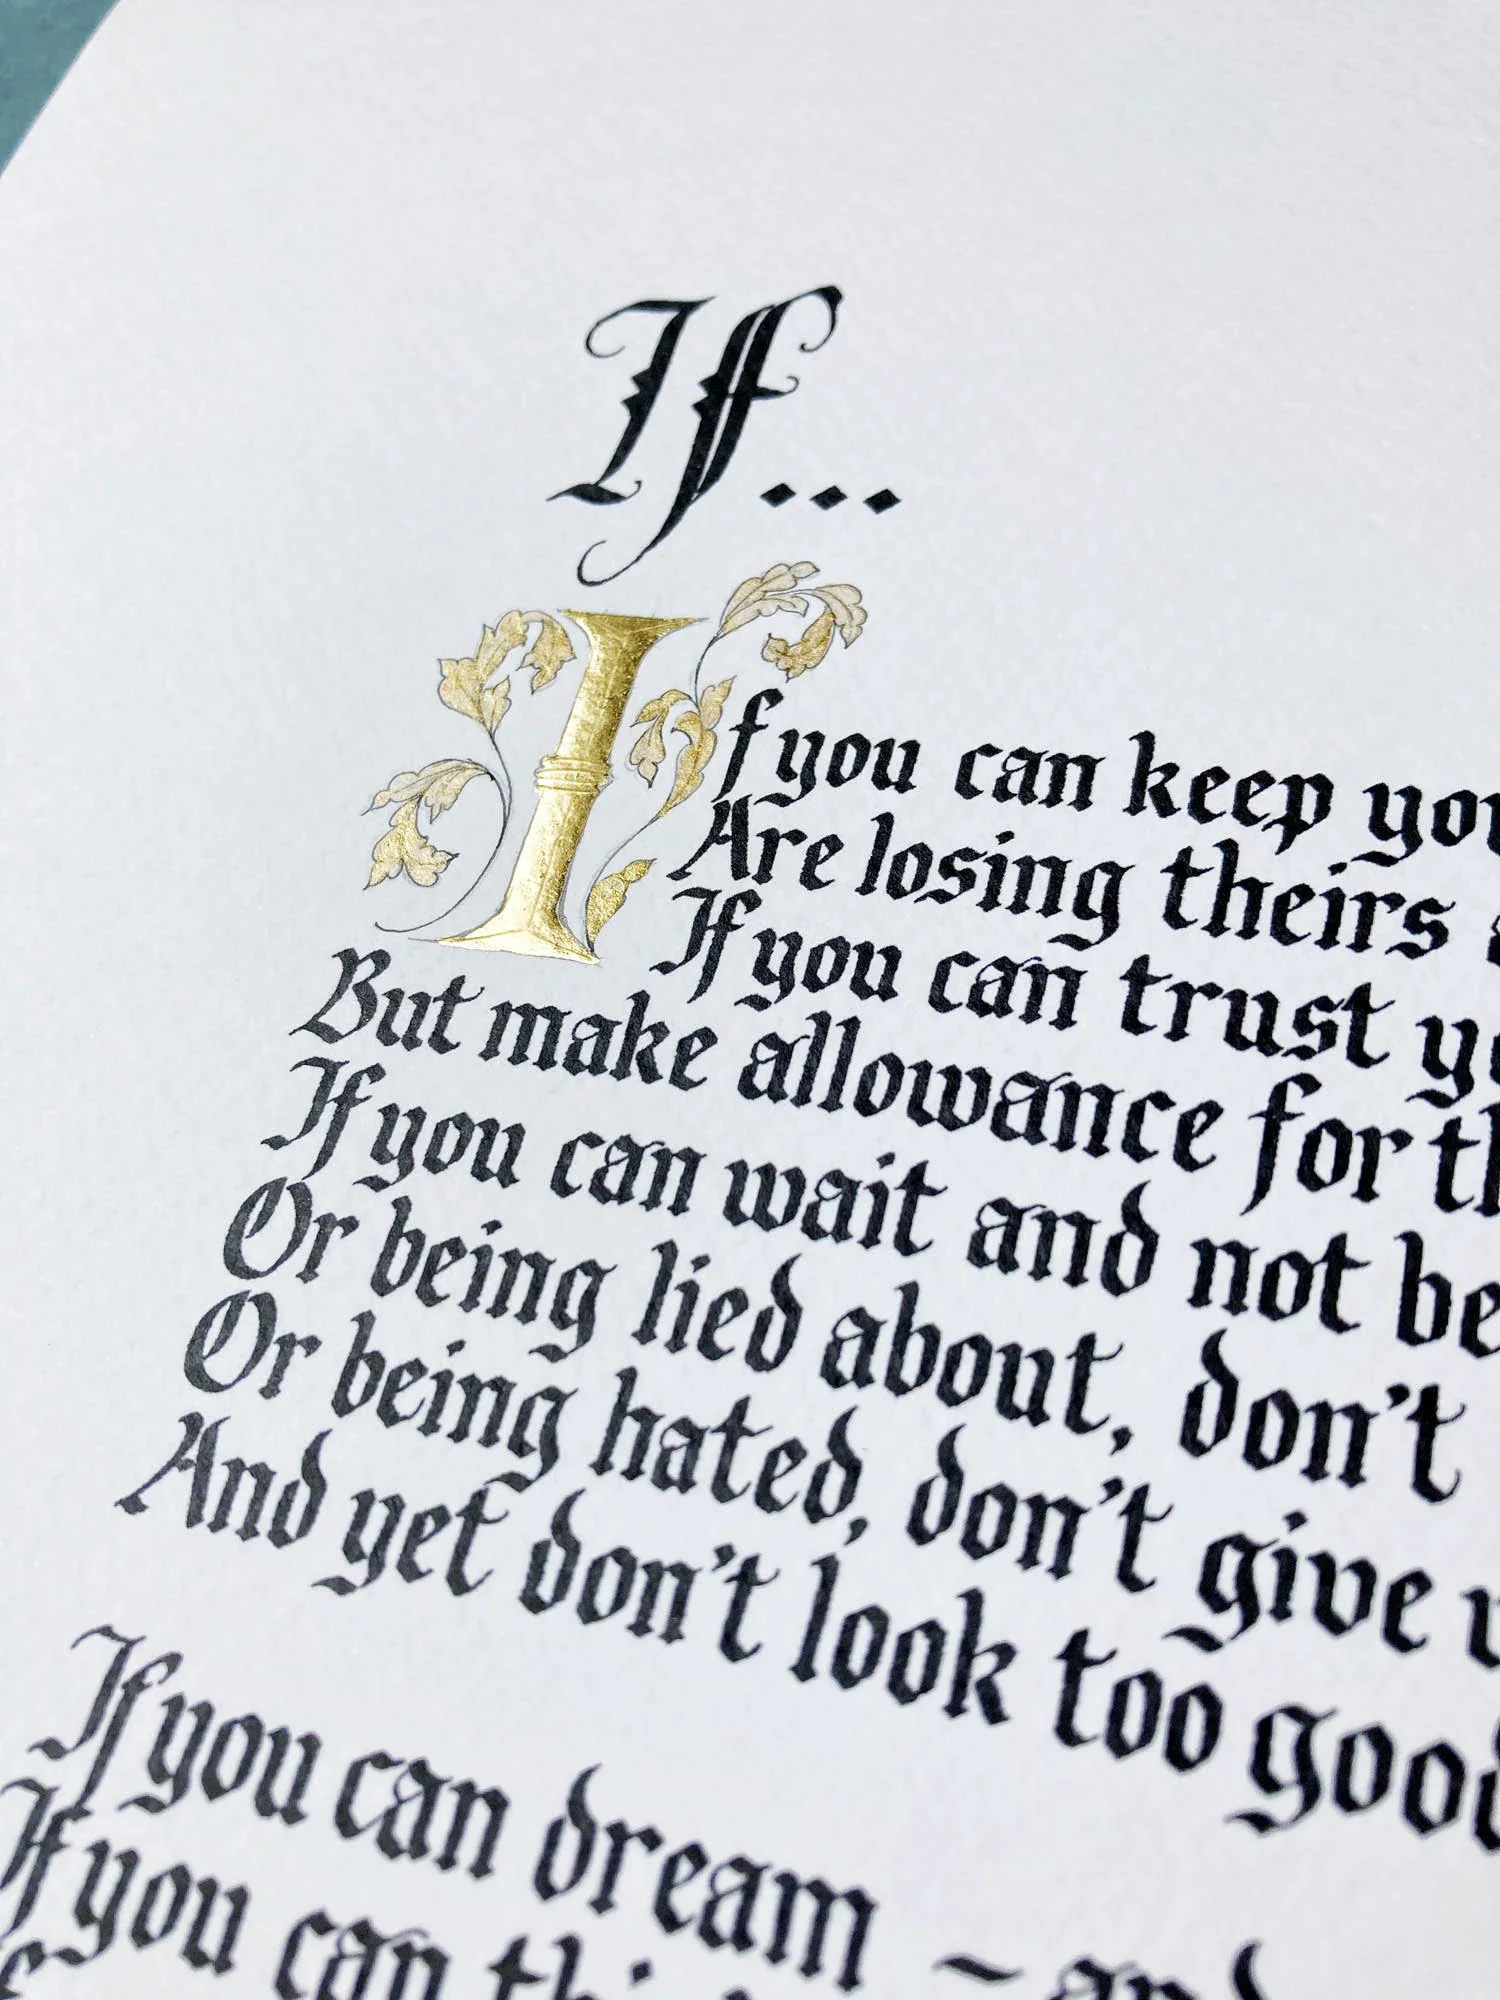 If...
If you can keep
Are losing theirs
If you can trust
But make allowance for
If you can wait and not be
Or being lied about, don't
Or being hated, don't give
And yet don't look too good
If you can dream – and
If you can